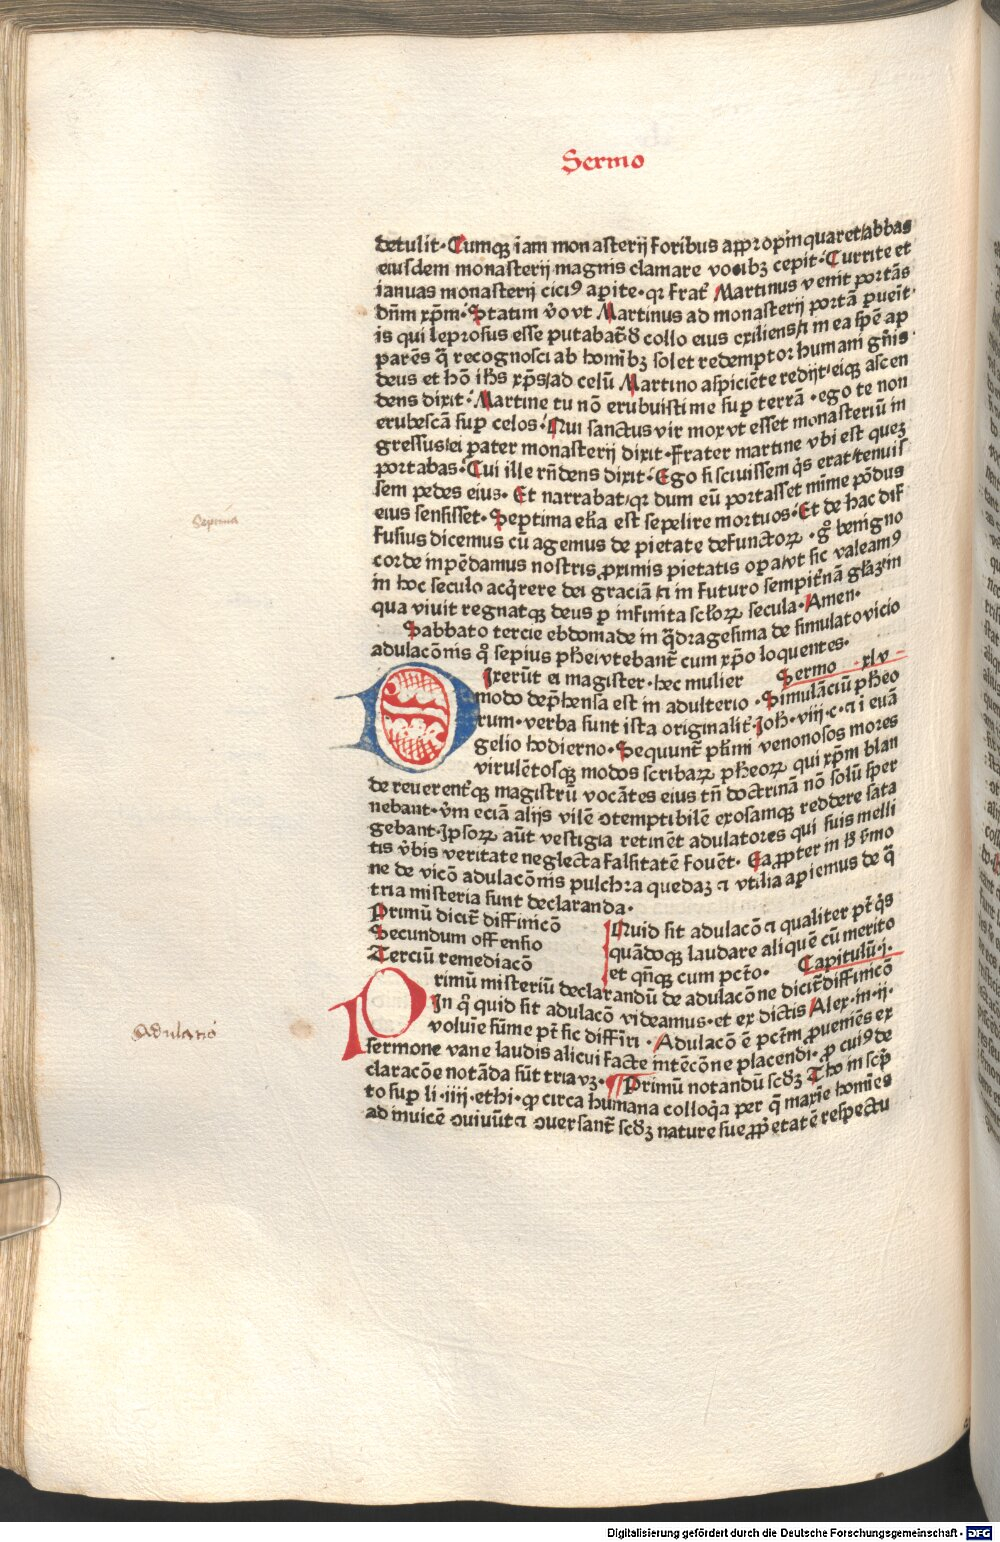 Sermo
detulit. Cumqꝫ iam monasterij foribus appropinquaret/abbas
eiusdem monasterij magnis clamare vocibꝫ cepit. Currite et
ianuas monasterij ciciꝰ apite. qr frat̃ Martinus venit portãs
dñm xp̃m. Statim ṽo vt Martinus ad monasterij portã pueit̃.
is qui leprosus esse putabat̃. d̃ collo eius exiliens/⁊ in ea sp̃e ap
parẽs q̃ recognosci ab homĩbꝫ solet redemptor humani gñis
deus et hõ ih̃s xp̃s/ad celũ Martino aspiciẽte redijt/eiqꝫ ascen
dens dixit. Martine tu nõ erubuisti me sup terrã. ego te non
erubescã sup celos. Qui sanctus vir mox vt esset monasteriũ in
gressus/ei pater monasterij dixit. Frater martine vbi est quẽ
portabas. Cui ille rñdens dixit. Ego si sciuissem q̃s erat/tenuis
sem pedes eius. Et narrabat/qr dum eũ portasset mĩme põdus
eius sensisset. Septima el̃ia est sepelire mortuos. Et de hac dif
fusius dicemus cũ agemus de pietate defunctoꝝ. g̊ benigno
corde inpẽdamus nostris ꝓximis pietatis opa/vt sic valeamꝰ
in hoc seculo acq̃rere dei graciã ⁊ in futuro sempit̃nã gl̃iaꝫ in
qua viuit regnatqꝫ deus p infinita sc̃loꝝ secula. Amen.
Sabbato tercie ebdomade in q̃dragesima de simulato vicio
adulacõnis q̊ sepius ph̃ei vtebant̃ cum xp̃o loquentes.
Dixerũt ei magister. hec mulier Sermo xlv
modo dep̃hensa est in adulterio. Simulãciũ ph̃eo
rum. verba sunt ista originalit̃. Joh̃. viij. c. ⁊ i euã
gelio hodierno. Sequunt̃ ph̃imi venonosos mores
virulẽtosqꝫ modos scribaꝝ ph̃eoꝝ qui xp̃m blan
de reuerent̃qꝫ magistrũ vocãtes eius tñ doctrinã nõ solũ sper
nebant. ṽm eciã alijs vilẽ ↄtemptibilẽ exosamqꝫ reddere sata
gebant. Ipsoꝝ aũt vestigia retinẽt adulatores qui suis melli
tis ṽbis veritate neglecta falsitatẽ fouẽt. Ea ꝓpter in h̊ s̃mo
ne de vicõ adulacõnis pulchra quedaꝫ ⁊ vtilia apiemus de q̃
tria misteria sunt declaranda.
Primũ dicit̃ diffinicõ
Secundum offensio
Terciũ remediacõ
Quid sit adulacõ ⁊ qualiter pt̃ q̃s
quãdoqꝫ laudare aliquẽ cũ merito
et qñqꝫ cum pct̃o. Capitulũ. j.
Primũ misteriũ declarandũ de adulacõne dicit̃ diffinicõ
In q̊ quid sit adulacõ videamus. et ex dictis Alex. in. ij.
voluĩe sũme pt̃ sic diffĩri. Adulacõ ẽ pct̃m ꝓueniẽs ex
sermone vane laudis alicui facte intẽcõne placendi. ꝓ cuiꝰ de
claracõe notãda sũt tria vꝫ. ¶ Primũ notandũ scd̃ꝫ Tho in sc̃p
to sup li. iiij. ethi. ꝙ circa humana colloq̃a per q̃ maxĩe homĩes
ad inuicẽ ↄuiuũt ⁊ ↄuersant̃ scd̃ꝫ nature sue ꝓpetatẽ respectu
Septima
Adulatio
Digitalisierung gefördert durch die Deutsche Forschungsgemeinschaft - DFG